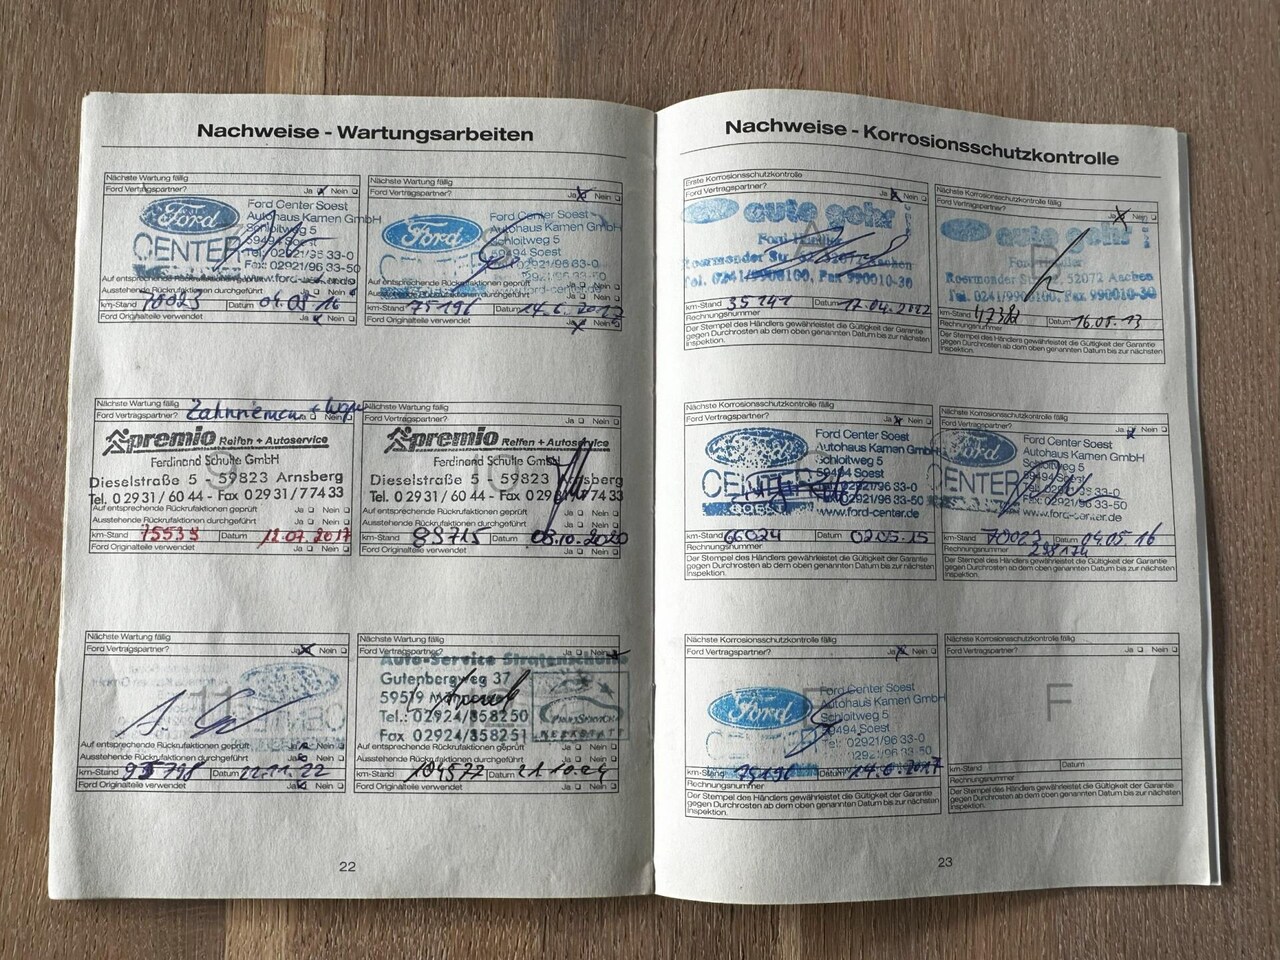 Nachweise - Wartungsarbeiten
Nächste Wartung fällig
Ford Vertragspartner? Ja Nein
Ford
CENTER
Ford Center Soest
Autohaus Kamen GmbH
Schloitweg 5
59494 Soest
Tel. 02921/96 33-0
Fax: 02921/96 33-50
www.ford-center.de
Auf entsprechende Rückrufaktionen geprüft
Ausstehende Rückrufaktionen durchgeführt Ja Nein
km-Stand 70023 Datum 04.05 16
Ford Originalteile verwendet Ja Nein
Nächste Wartung fällig
Ford Vertragspartner? Ja Nein
Ford
Ford Center Soest
Autohaus Kamen GmbH
Schloitweg 5
59494 Soest
02921/96 33-0
Auf entsprechende Rückrufaktionen geprüft
Ausstehende
km-Stand 75196 Datum 14.6.2017
Ford Originalteile verwendet Ja Nein
Nächste Wartung fällig
Ford Vertragspartner? Zahnriemen + Ja Nein
premio Reifen + Autoservice
Ferdinand Schulte GmbH
Dieselstraße 5 - 59823 Arnsberg
Tel. 0 29 31 / 60 44 - Fax 0 29 31 / 7 74 33
Auf entsprechende Rückrufaktionen geprüft Ja Nein
Ausstehende Rückrufaktionen durchgeführt Ja Nein
km-Stand 75539 Datum 12.07.2017
Ford Originalteile verwendet Ja Nein
Nächste Wartung fällig
Ford Vertragspartner? Ja Nein
premio Reifen + Autoservice
Ferdinand Schulte GmbH
Dieselstraße 5 - 59823 Arnsberg
Tel. 0 29 31 / 60 44 - Fax 0 29 31 / 7 74 33
Auf entsprechende Rückrufaktionen geprüft Ja Nein
Ausstehende Rückrufaktionen durchgeführt Ja Nein
km-Stand 88715 Datum 08.10.2020
Ford Originalteile verwendet Ja Nein
Nächste Wartung fällig
Ford Vertragspartner? Ja Nein
11
Auf entsprechende Rückrufaktionen geprüft Ja Nein
Ausstehende Rückrufaktionen durchgeführt Ja Nein
km-Stand Datum 22.11.22
Ford Originalteile verwendet Ja Nein
Nächste Wartung fällig
Ford Vertragspartner? Ja Nein
Auto-Service
Gutenbergweg 37
59519
Tel.: 02924/858250
Fax 02924/858251
Auf entsprechende Rückrufaktionen geprüft Ja Nein
Ausstehende Rückrufaktionen durchgeführt Ja Nein
km-Stand 104577 Datum 21.10.24
Ford Originalteile verwendet Ja Nein
22
Nachweise - Korrosionsschutzkontrolle
Erste Korrosionsschutzkontrolle
Ford Vertragspartner? Ja Nein
Tel. 0241/9900100, Fax 990010-30
km-Stand 35141 Datum 17.04.2012
Rechnungsnummer
Der Stempel des Händlers gewährleistet die Gültigkeit der Garantie
gegen Durchrosten ab dem oben genannten Datum bis zur nächsten
Inspektion.
Nächste Korrosionsschutzkontrolle fällig
Ford Vertragspartner? Ja Nein
52072 Aachen
Tel. 0241/9900100, Fax 990010-30
km-Stand Datum 16.05.13
Rechnungsnummer
Der Stempel des Händlers gewährleistet die Gültigkeit der Garantie
gegen Durchrosten ab dem oben genannten Datum bis zur nächsten
Inspektion.
Nächste Korrosionsschutzkontrolle fällig
Ford Vertragspartner? Ja Nein
Ford
CENTER
SOEST
Ford Center Soest
Autohaus Kamen GmbH
Schloitweg 5
59494 Soest
02921/96 33-0
02921/96 33-50
www.ford-center.de
km-Stand 66024 Datum 02.05.15
Rechnungsnummer
Der Stempel des Händlers gewährleistet die Gültigkeit der Garantie
gegen Durchrosten ab dem oben genannten Datum bis zur nächsten
Inspektion.
Nächste Korrosionsschutzkontrolle fällig
Ford Vertragspartner? Ja Nein
Ford
CENTER
Ford Center Soest
Autohaus Kamen GmbH
Schloitweg 5
59494 Soest
www.ford-center.de
km-Stand 70023 Datum 04.05 16
Rechnungsnummer 298174
Der Stempel des Händlers gewährleistet die Gültigkeit der Garantie
gegen Durchrosten ab dem oben genannten Datum bis zur nächsten
Inspektion.
Nächste Korrosionsschutzkontrolle fällig
Ford Vertragspartner? Ja Nein
Ford
Ford Center Soest
Autohaus Kamen GmbH
Schloitweg 5
59494 Soest
Tel.: 02921/96 33-0
km-Stand 75196 Datum 14.6.2017
Rechnungsnummer
Der Stempel des Händlers gewährleistet die Gültigkeit der Garantie
gegen Durchrosten ab dem oben genannten Datum bis zur nächsten
Inspektion.
Nächste Korrosionsschutzkontrolle fällig
Ford Vertragspartner? Ja Nein
F
km-Stand Datum
Rechnungsnummer
Der Stempel des Händlers gewährleistet die Gültigkeit der Garantie
gegen Durchrosten ab dem oben genannten Datum bis zur nächsten
Inspektion.
23